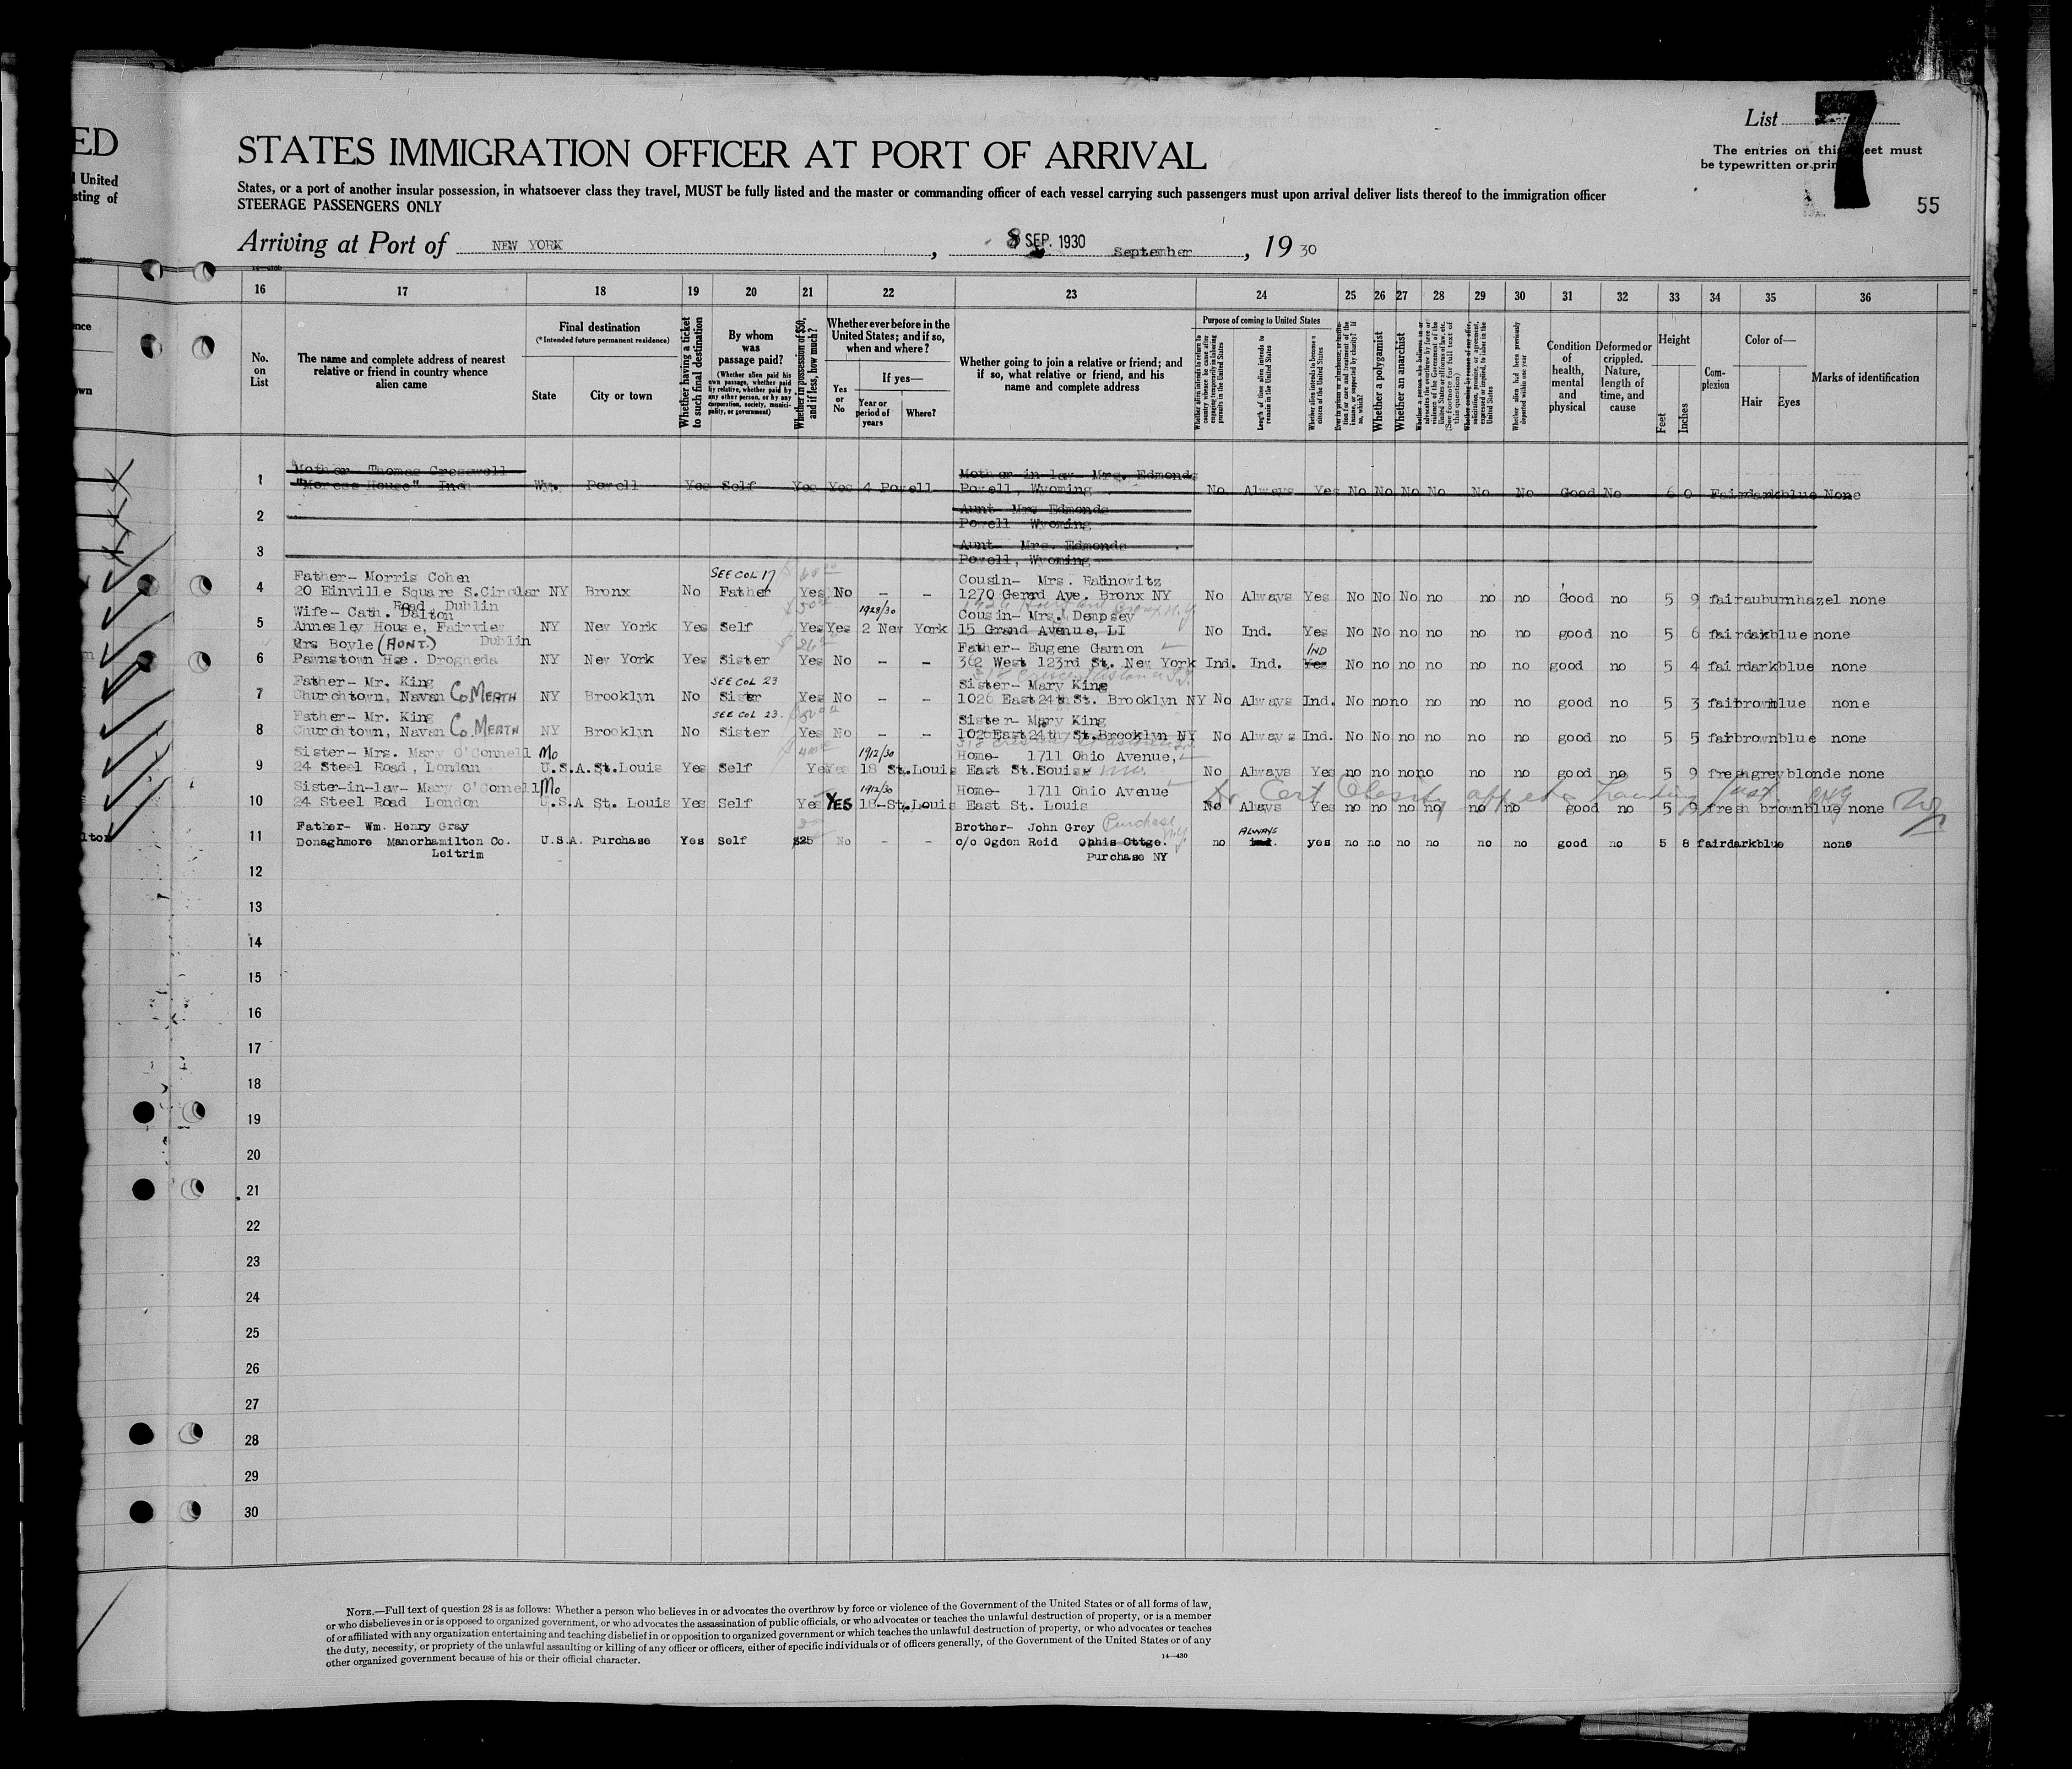 ED
United
sting of
List 7
The entries on this sheet must
be typewritten or
55
STATES IMMIGRATION OFFICER AT PORT OF ARRIVAL
States, or a port of another insular possession, in whatsoever class they travel, MUST be fully listed and the master or commanding officer of each vessel carrying such passengers must upon arrival deliver lists thereof to the immigration officer
STEERAGE PASSENGERS ONLY
Arriving at Port of NEW YORK , 8 SEP. 1930 September , 19 30
16 17 18 19 20 21 22 23 24 25 26 27 28 29 30 31 32 33 34 35 36
No. on List
The name and complete address of nearest relative or friend in country whence alien came
Final destination
(*Intended future permanent residence)
State
City or town
Whether having a ticket to such final destination
By whom was passage paid?
(Whether alien paid his own passage, whether paid by relative, whether paid by any other person, or by any corporation, society, municipality, or government)
Whether in possession of $50, and if less, how much?
Whether ever before in the United States; and if so, when and where?
Yes or No
If yes—
Year or period of years
Where?
Whether going to join a relative or friend; and if so, what relative or friend, and his name and complete address
Purpose of coming to United States
Length of time alien intends to remain in the United States
Whether alien intends to become a citizen of the United States
Whether a polygamist
Whether an anarchist
Whether alien had been previously deported within one year
Condition of health, mental and physical
Deformed or crippled. Nature, length of time, and cause
Height
Feet
Inches
Complexion
Color of—
Hair
Eyes
Marks of identification
Mother Thomas Cresswell Mother-in-law Mrs. Edmonds
1 House" Wy. Powell Yes Self Yes Yes 4 Powell Powell, Wyoming No Always Yes No No No No No No Good No 6 0 Fair dark blue None
Aunt Mrs Edmonds
2 Powell Wyoming
Aunt Mrs. Edmonds
3 Powell, Wyoming
Father- Morris Cohen SEE COL 17 Cousin- Mrs. Rabinovitz
4 20 Einville Square S.Circular NY Bronx No Father Yes No - - 1270 Gerard Ave. Bronx NY No Always Yes No No No no no no Good no 5 9 fair auburn hazel none
Road Dublin
Wife- Cath. Dalton 1928/30 Cousin- Mrs. Dempsey
5 Annesley House, Fairview NY New York Yes Self Yes Yes 2 New York 15 Grand Avenue, LI No Ind. Yes No No no no no no good no 5 6 fair dark blue none
Dublin
Mrs Boyle (AUNT.) Father- Eugene Gannon IND
6 Pawnstown Hse. Drogheda NY New York Yes Sister Yes No - - 362 West 123rd St. New York Ind. Ind. Yes No no no no no no good no 5 4 fair dark blue none
Father- Mr. King SEE COL 23 Sister- Mary King
7 Churchtown, Navan Co MEATH NY Brooklyn No Sister Yes No - - 1026 East 24th St. Brooklyn NY No Always Ind. No no no no no no good no 5 3 fair brown blue none
Father- Mr. King SEE COL 23. Sister- Mary King
8 Churchtown, Navan Co. MEATH NY Brooklyn No Sister Yes No - - 102 East 24th St. Brooklyn NY No Always Ind. No No no no no no good no 5 5 fair brown blue none
Sister- Mrs. Mary O'Connell Mo 1912/30 Home- 1711 Ohio Avenue,
9 24 Steel Road, London U.S.A. St. Louis Yes Self Yes Yes 18 St. Louis East St. Louis No Always Yes no no no no no no good no 5 9 fresh grey blonde none
Sister-in-law- Mary O'Connell Mo 1912/30 Home- 1711 Ohio Avenue
10 24 Steel Road London U.S.A St. Louis Yes Self Yes YES 18-St. Louis East St. Louis No Always Yes no no no no no no good no 5 9 fresh brown blue none
Father- Wm. Henry Gray Brother- John Grey Purchase N.Y. ALWAYS
11 Donaghmore Manorhamilton Co. U.S.A. Purchase Yes Self $25 No - - c/o Ogden Reid Ophis Cttge. no ind. yes no no no no no no good no 5 8 fair dark blue none
Leitrim Purchase NY
12
13
14
15
16
17
18
19
20
21
22
23
24
25
26
27
28
29
30
NOTE.—Full text of question 28 is as follows: Whether a person who believes in or advocates the overthrow by force or violence of the Government of the United States or of all forms of law,
or who disbelieves in or is opposed to organized government, or who advocates the assassination of public officials, or who advocates or teaches the unlawful destruction of property, or is a member
of or affiliated with any organization entertaining and teaching disbelief in or opposition to organized government or which teaches the unlawful destruction of property, or who advocates or teaches
the duty, necessity, or propriety of the unlawful assaulting or killing of any officer or officers, either of specific individuals or of officers generally, of the Government of the United States or of any
other organized government because of his or their official character.
14—430